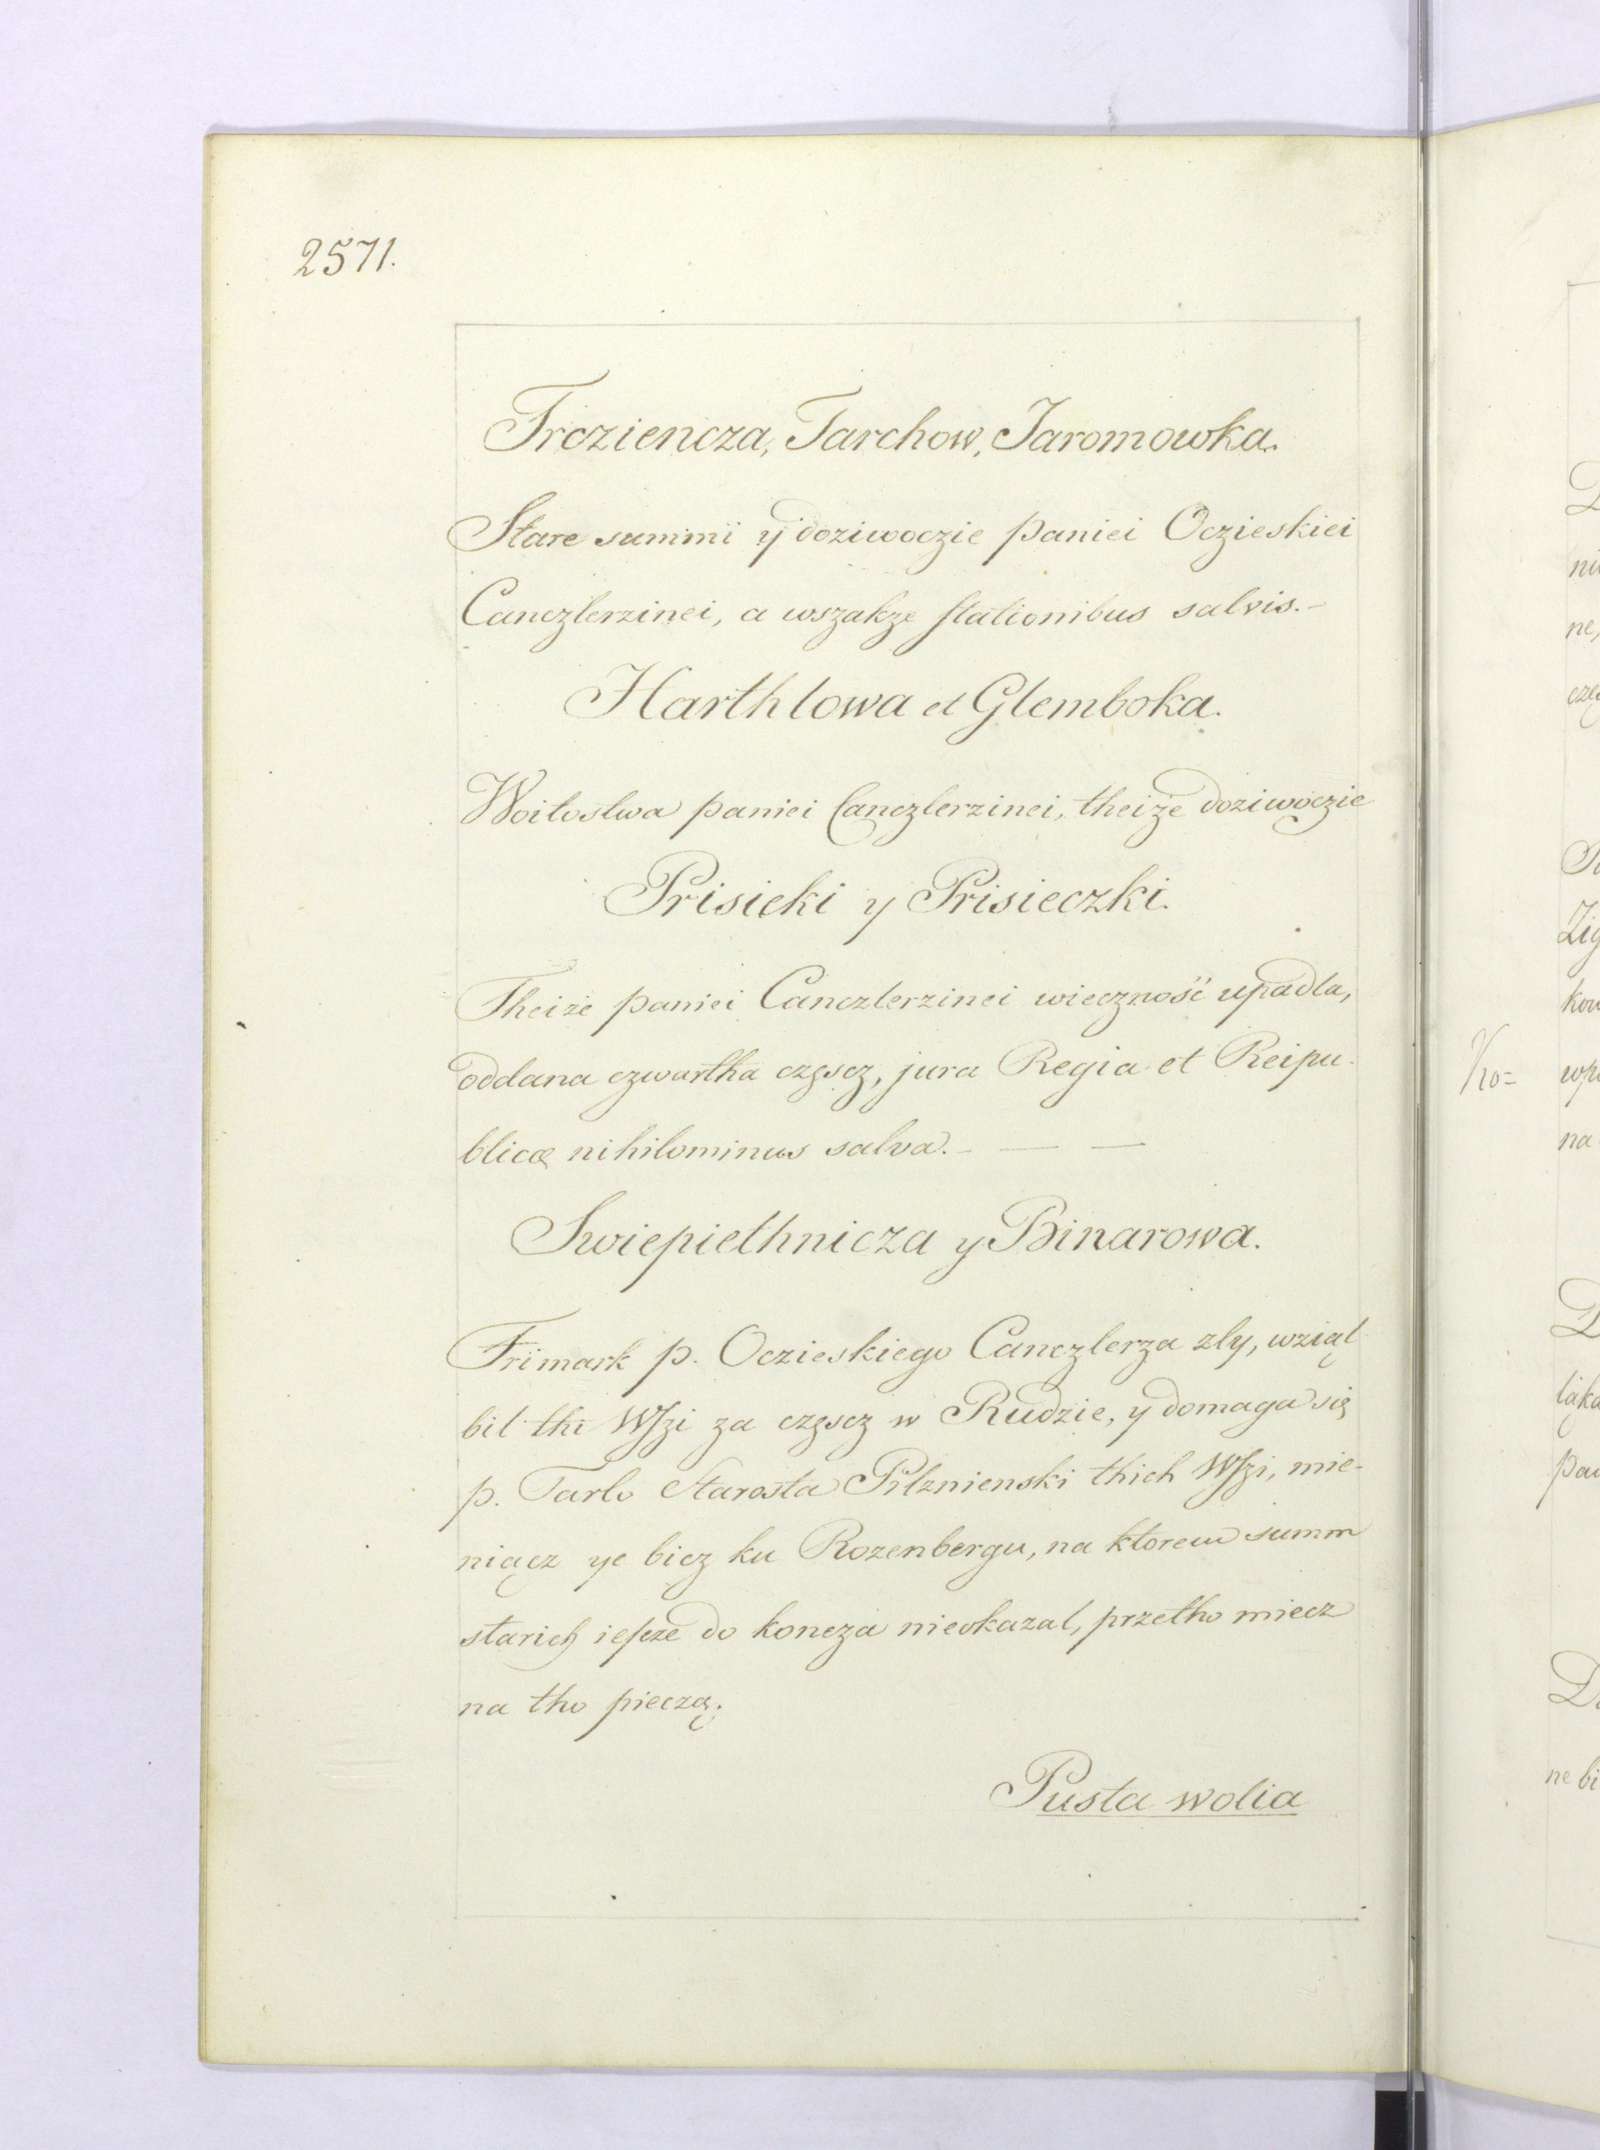 2571.
Trcziencza, Tarchow, Jaromowka.
Stare summÿ ÿ doziwoczie paniei Oczieskiei
Canczlerzinei, a wszakze stationibus salvis.-
Harthlowa et Glemboka.
Woitostwa paniei Canczlerzinei, theize doziwoczie
Prisieki y Prisieczki.
Theize paniei Canczlerzinei wieczność upadla,
oddana czwartha częscz, jura Regia et Reipu-
blicæ nihilominus salva. - — —
Swiepiethnicza y Binarowa.
Frimark p. Oczieskiego Canczlerza zly, wziąl
bil thi Wszi za częscz w Rudzie, y domaga się
p. Tarlo Starosta Pilznienski thich Wszi, mie-
niącz ye bicz ku Rozenbergu, na ktorem summ
starich iesze do koncza nieokazal, przetho miecz
na tho pieczą.
Pusta wolia
1/10=